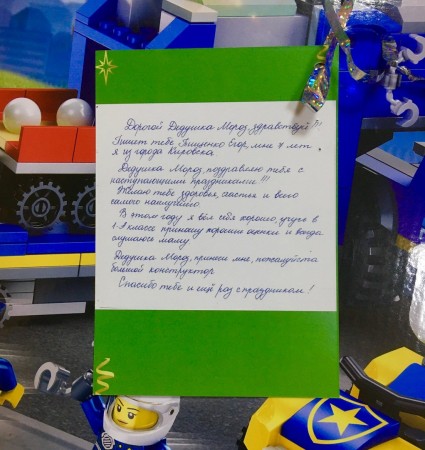 Дорогой Дедушка Мороз, здравствуй!
Пишет тебе Тищенко Егор, мне 7 лет
я из города Кировска.
Дедушка Мороз, поздравляю тебя с
наступающими праздниками!!!
Желаю тебе здоровья, счастья и всего
самого наилучшего.
В этом году я вёл себя хорошо, учусь в
1-А классе приношу хорошие оценки и всегда
слушаюсь маму.
Дедушка Мороз, принеси мне, пожалуйста
большой конструктор.
Спасибо тебе и ещё раз с праздником!